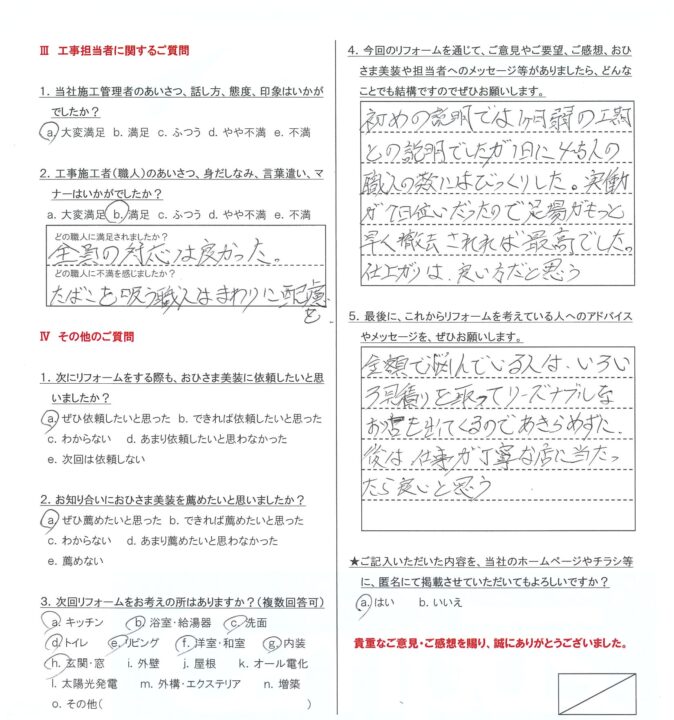 Ⅲ 工事担当者に関するご質問
1. 当社施工管理者のあいさつ、話し方、態度、印象はいかが
でしたか？
a. 大変満足 b. 満足 c. ふつう d. やや不満 e. 不満
2. 工事施工者（職人）のあいさつ、身だしなみ、言葉遣い、マ
ナーはいかがでしたか？
a. 大変満足 b. 満足 c. ふつう d. やや不満 e. 不満
どの職人に満足されましたか？
全員の対応は良かった。
どの職人に不満を感じましたか？
たばこを吸う職人はまわりに配慮
を。
Ⅳ その他のご質問
1. 次にリフォームをする際も、おひさま美装に依頼したいと思
いましたか？
a. ぜひ依頼したいと思った b. できれば依頼したいと思った
c. わからない d. あまり依頼したいと思わなかった
e. 次回は依頼しない
2. お知り合いにおひさま美装を薦めたいと思いましたか？
a. ぜひ薦めたいと思った b. できれば薦めたいと思った
c. わからない d. あまり薦めたいと思わなかった
e. 薦めない
3. 次回リフォームをお考えの所はありますか？（複数回答可）
a. キッチン b. 浴室・給湯器 c. 洗面
d. トイレ e. リビング f. 洋室・和室 g. 内装
h. 玄関・窓 i. 外壁 j. 屋根 k. オール電化
l. 太陽光発電 m. 外構・エクステリア n. 増築
o. その他（ ）
4. 今回のリフォームを通じて、ご意見やご要望、ご感想、おひ
さま美装や担当者へのメッセージ等がありましたら、どんな
ことでも結構ですのでぜひお願いします。
初めの説明では1ヶ月弱の工期
との説明でしたが1日に4~5人の
職人の数にはびっくりした。実働
が7日位いだったので足場がもっと
早く撤去されれば最高でした。
仕上がりは、良い方だと思う
5. 最後に、これからリフォームを考えている人へのアドバイス
やメッセージを、ぜひお願いします。
金額で悩んでいる人は、いろい
ろ見積りを取ってリーズナブルな
お店を出てくるのであきらめずに、
後は、仕事が丁寧な店に当たっ
たら良いと思う
★ご記入いただいた内容を、当社のホームページやチラシ等
に、匿名にて掲載させていただいてもよろしいですか？
a. はい b. いいえ
貴重なご意見・ご感想を賜り、誠にありがとうございました。